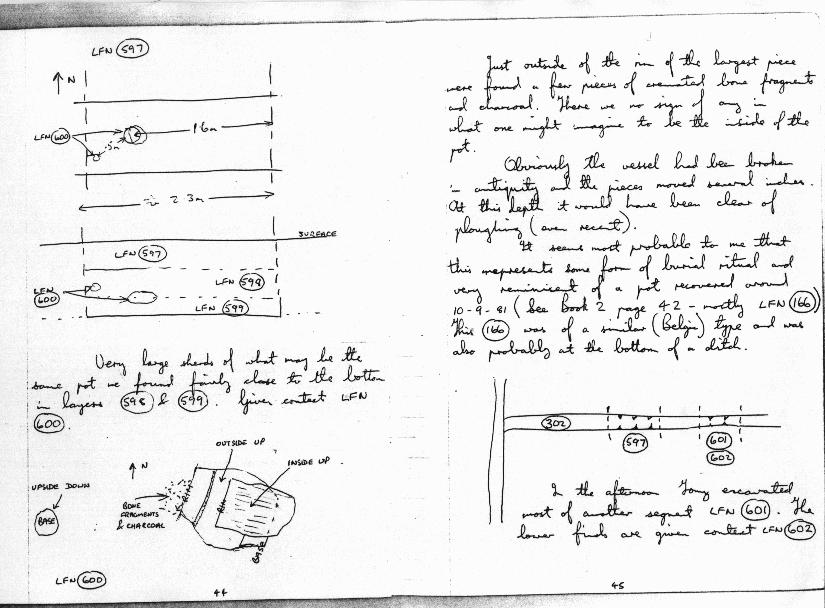 LFN 597
↑ N
LFN 600
.5m
1.6m
≈ 2.3m
SURFACE
LFN 597
LFN 598
LFN 600
LFN 599
Very large sherds of what may be the
same pot we found fairly close to the bottom
in layers 598 & 599. Given context LFN
600.
OUTSIDE UP
↑ N
INSIDE UP
UPSIDE DOWN
BASE
BONE
FRAGMENTS
& CHARCOAL
RIM
RIM
BASE
LFN 600
44
Just outside of the rim of the largest piece
were found a few pieces of cremated bone fragments
and charcoal. There we no sign of any in
what one might imagine to be the inside of the
pot.
Obviously the vessel had been broken
in antiquity and the pieces moved several inches.
At this depth it would have been clear of
ploughing (even recent).
It seems most probable to me that
this represents some form of burial ritual and
very reminiscent of a pot recovered around
10-9-81 (See Book 2 page 42 - mostly LFN 166)
This 166 was of a similar (Belgic) type and was
also probably at the bottom of a ditch.
302
597
601
602
In the afternoon Tony excavated
most of another segment LFN 601. The
lower finds are given context LFN 602
45